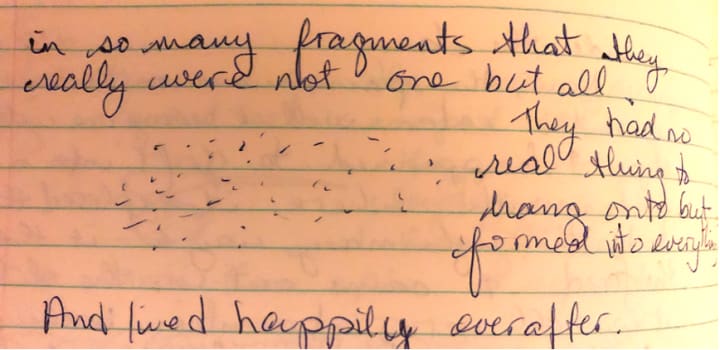 in so many fragments that they
really were not one but all.
They had no
real thing to
hang onto but
formed into everything
And lived happily everafter.